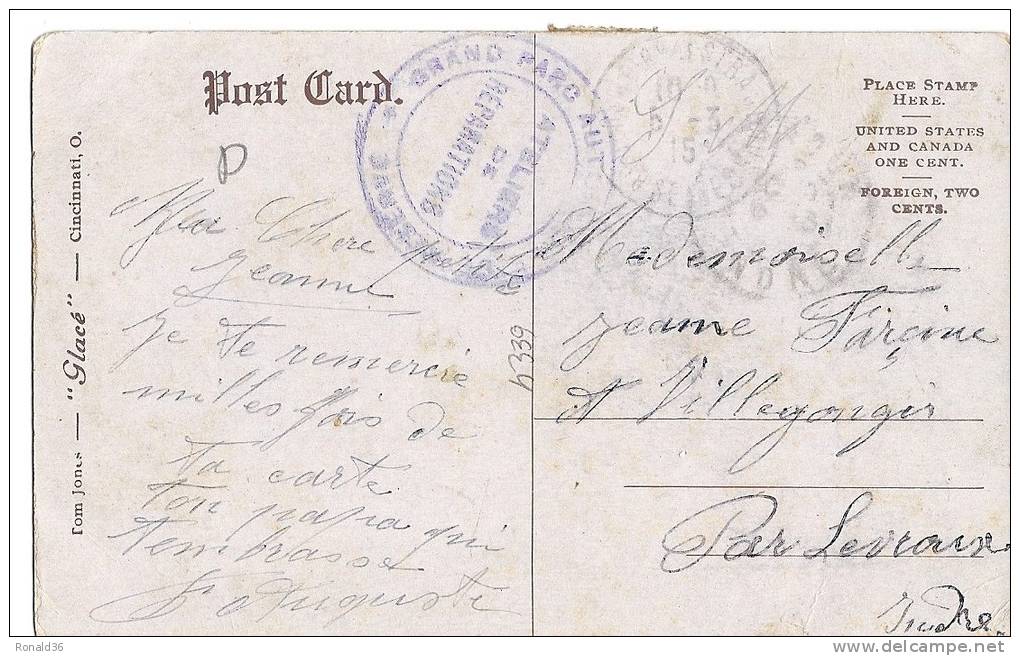 Post Card.
PLACE STAMP
HERE.
UNITED STATES
AND CANADA
ONE CENT.
FOREIGN, TWO
CENTS.
Tom Jones — "Glacé" — Cincinnati, O.
GRAND PARC AUT
ATELIERS
DE
REPARATIONS
S. M.
Ma Chere petite
Jeanne
je te remercie
milles fois de
ta carte
ton papa qui
t'embrasse
Auguste
h339
Mademoiselle
Jeanne
A Villegongis
Par Levroux
Indre
Ronald36
delcampe.net